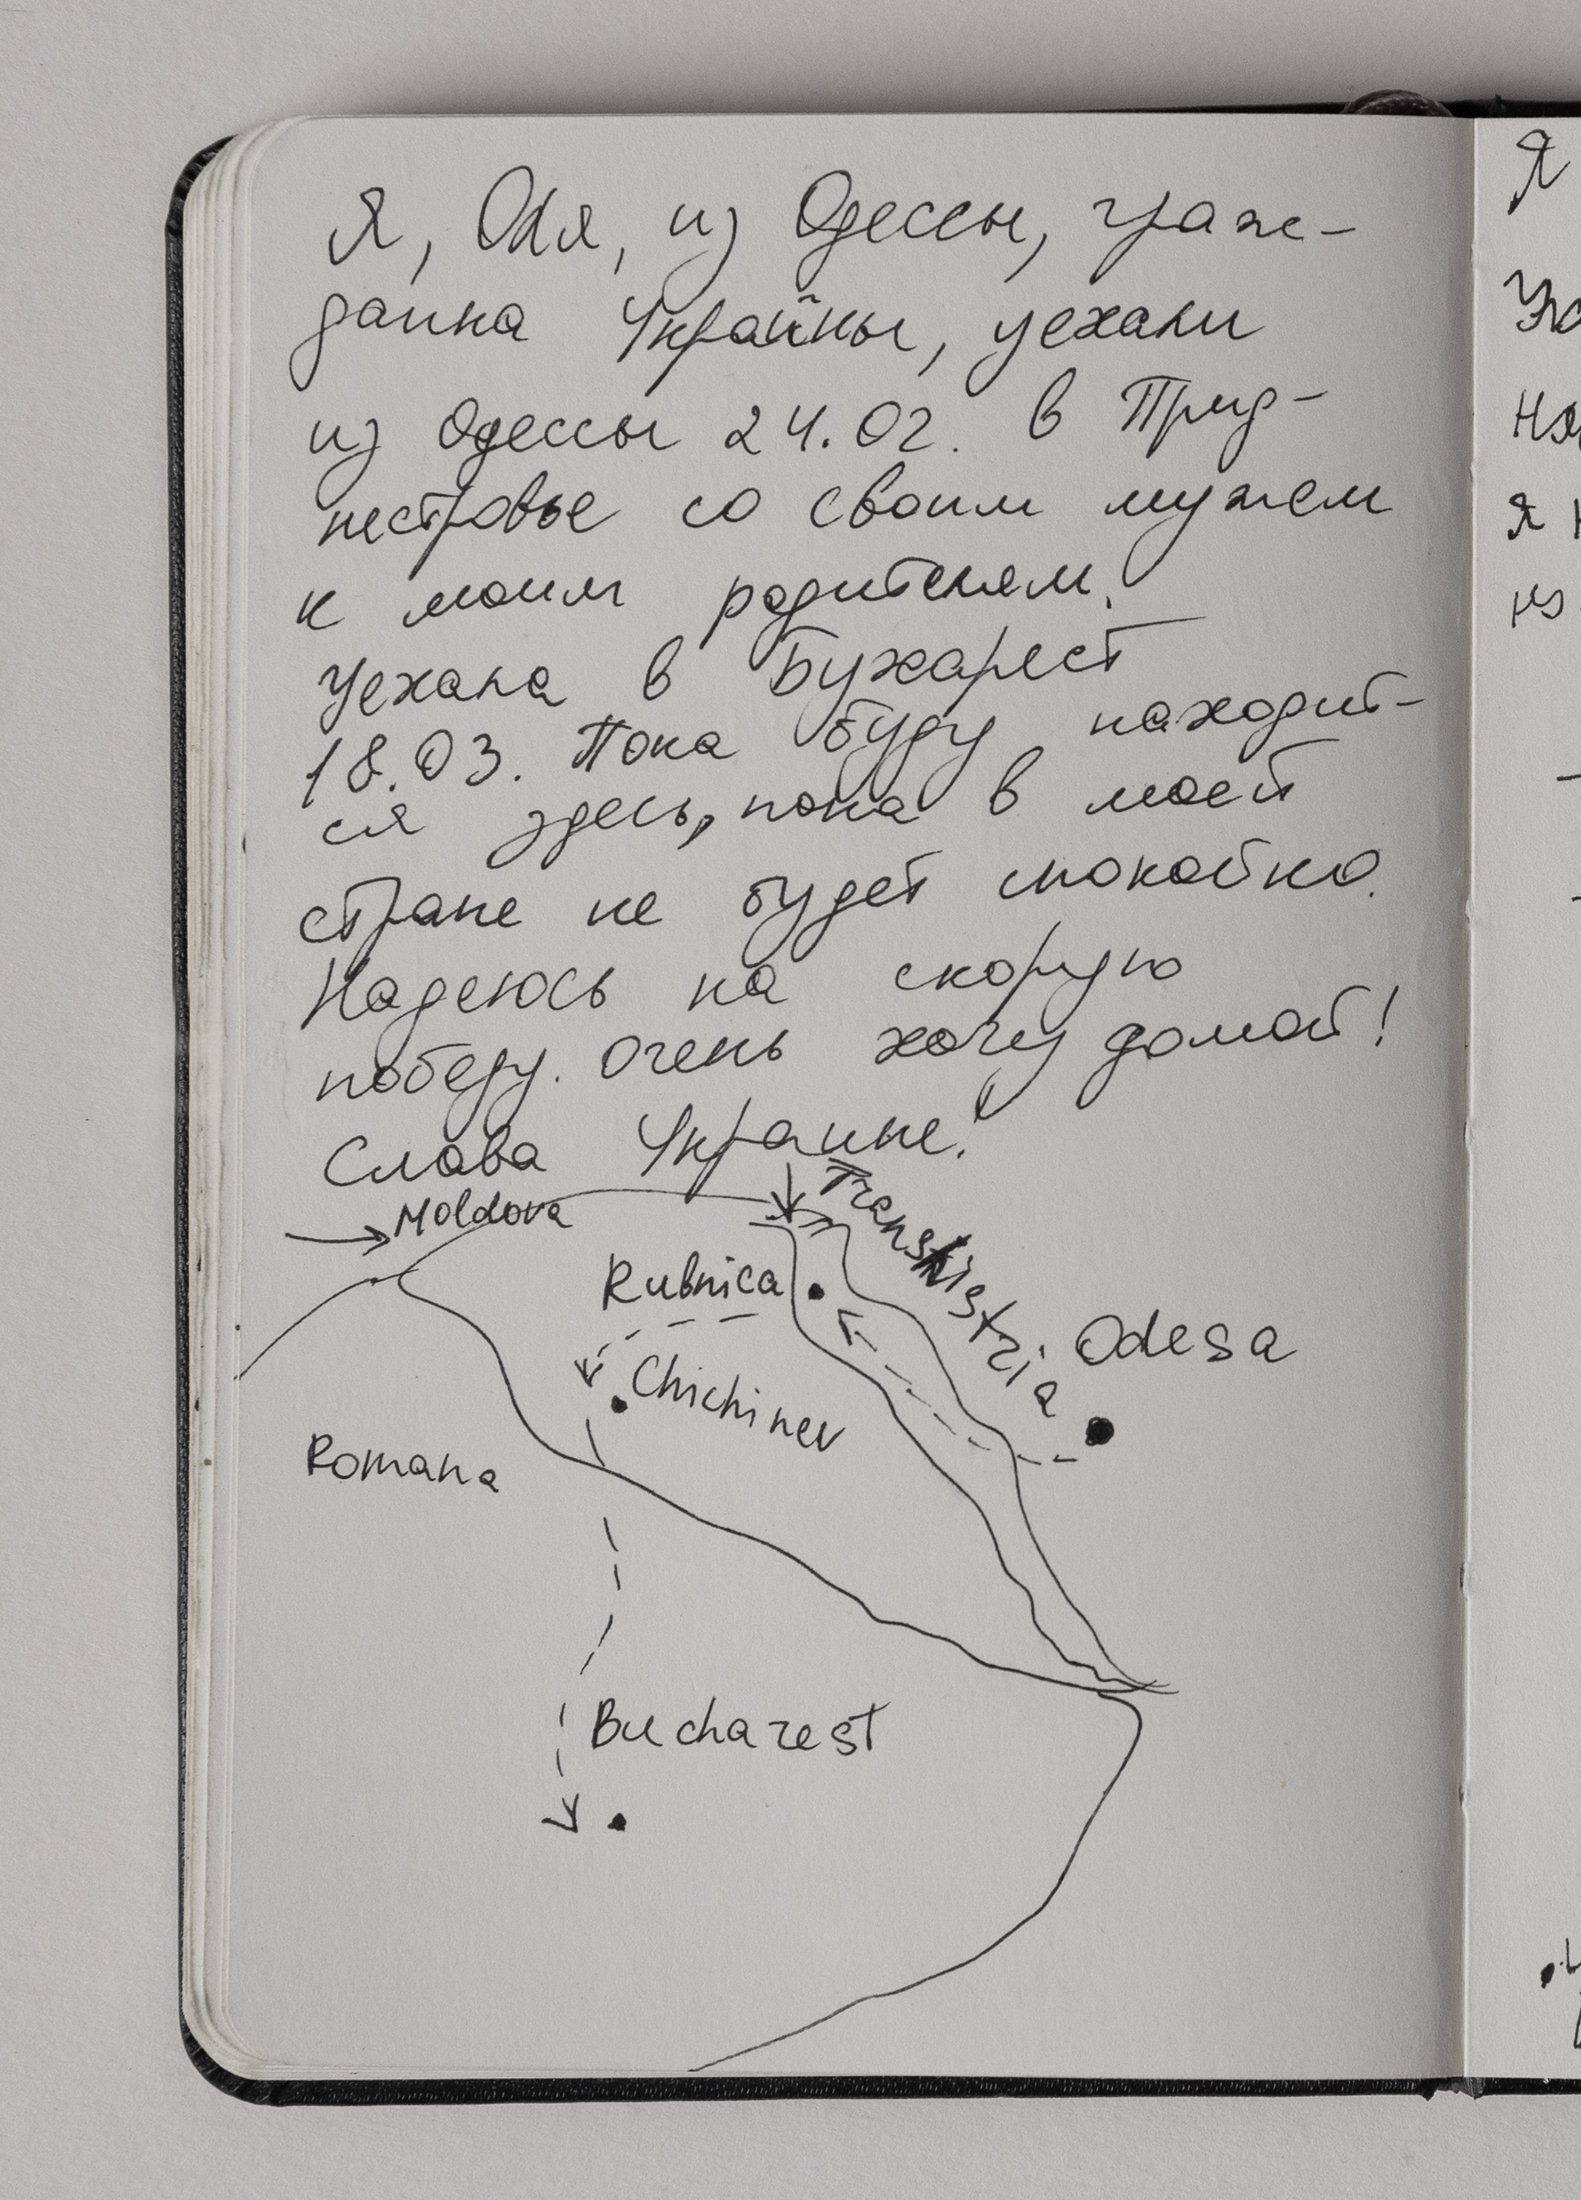 Я, Оля, из Одессы, граж-
данка Украйны, уехали
из Одессы 24.02. в Прид-
нестровье со своим мужем
к моим родителям.
Уехала в Бухарест
18.03. Пока буду находит-
ся здесь, пока в моей
стране не будет спокойно.
Надеюсь на скорую
победу. Очень хочу домой!
Слава Украине!
Moldova
Transnistria
Rubnica
Odesa
Chichinev
Romana
Bucharest
Я